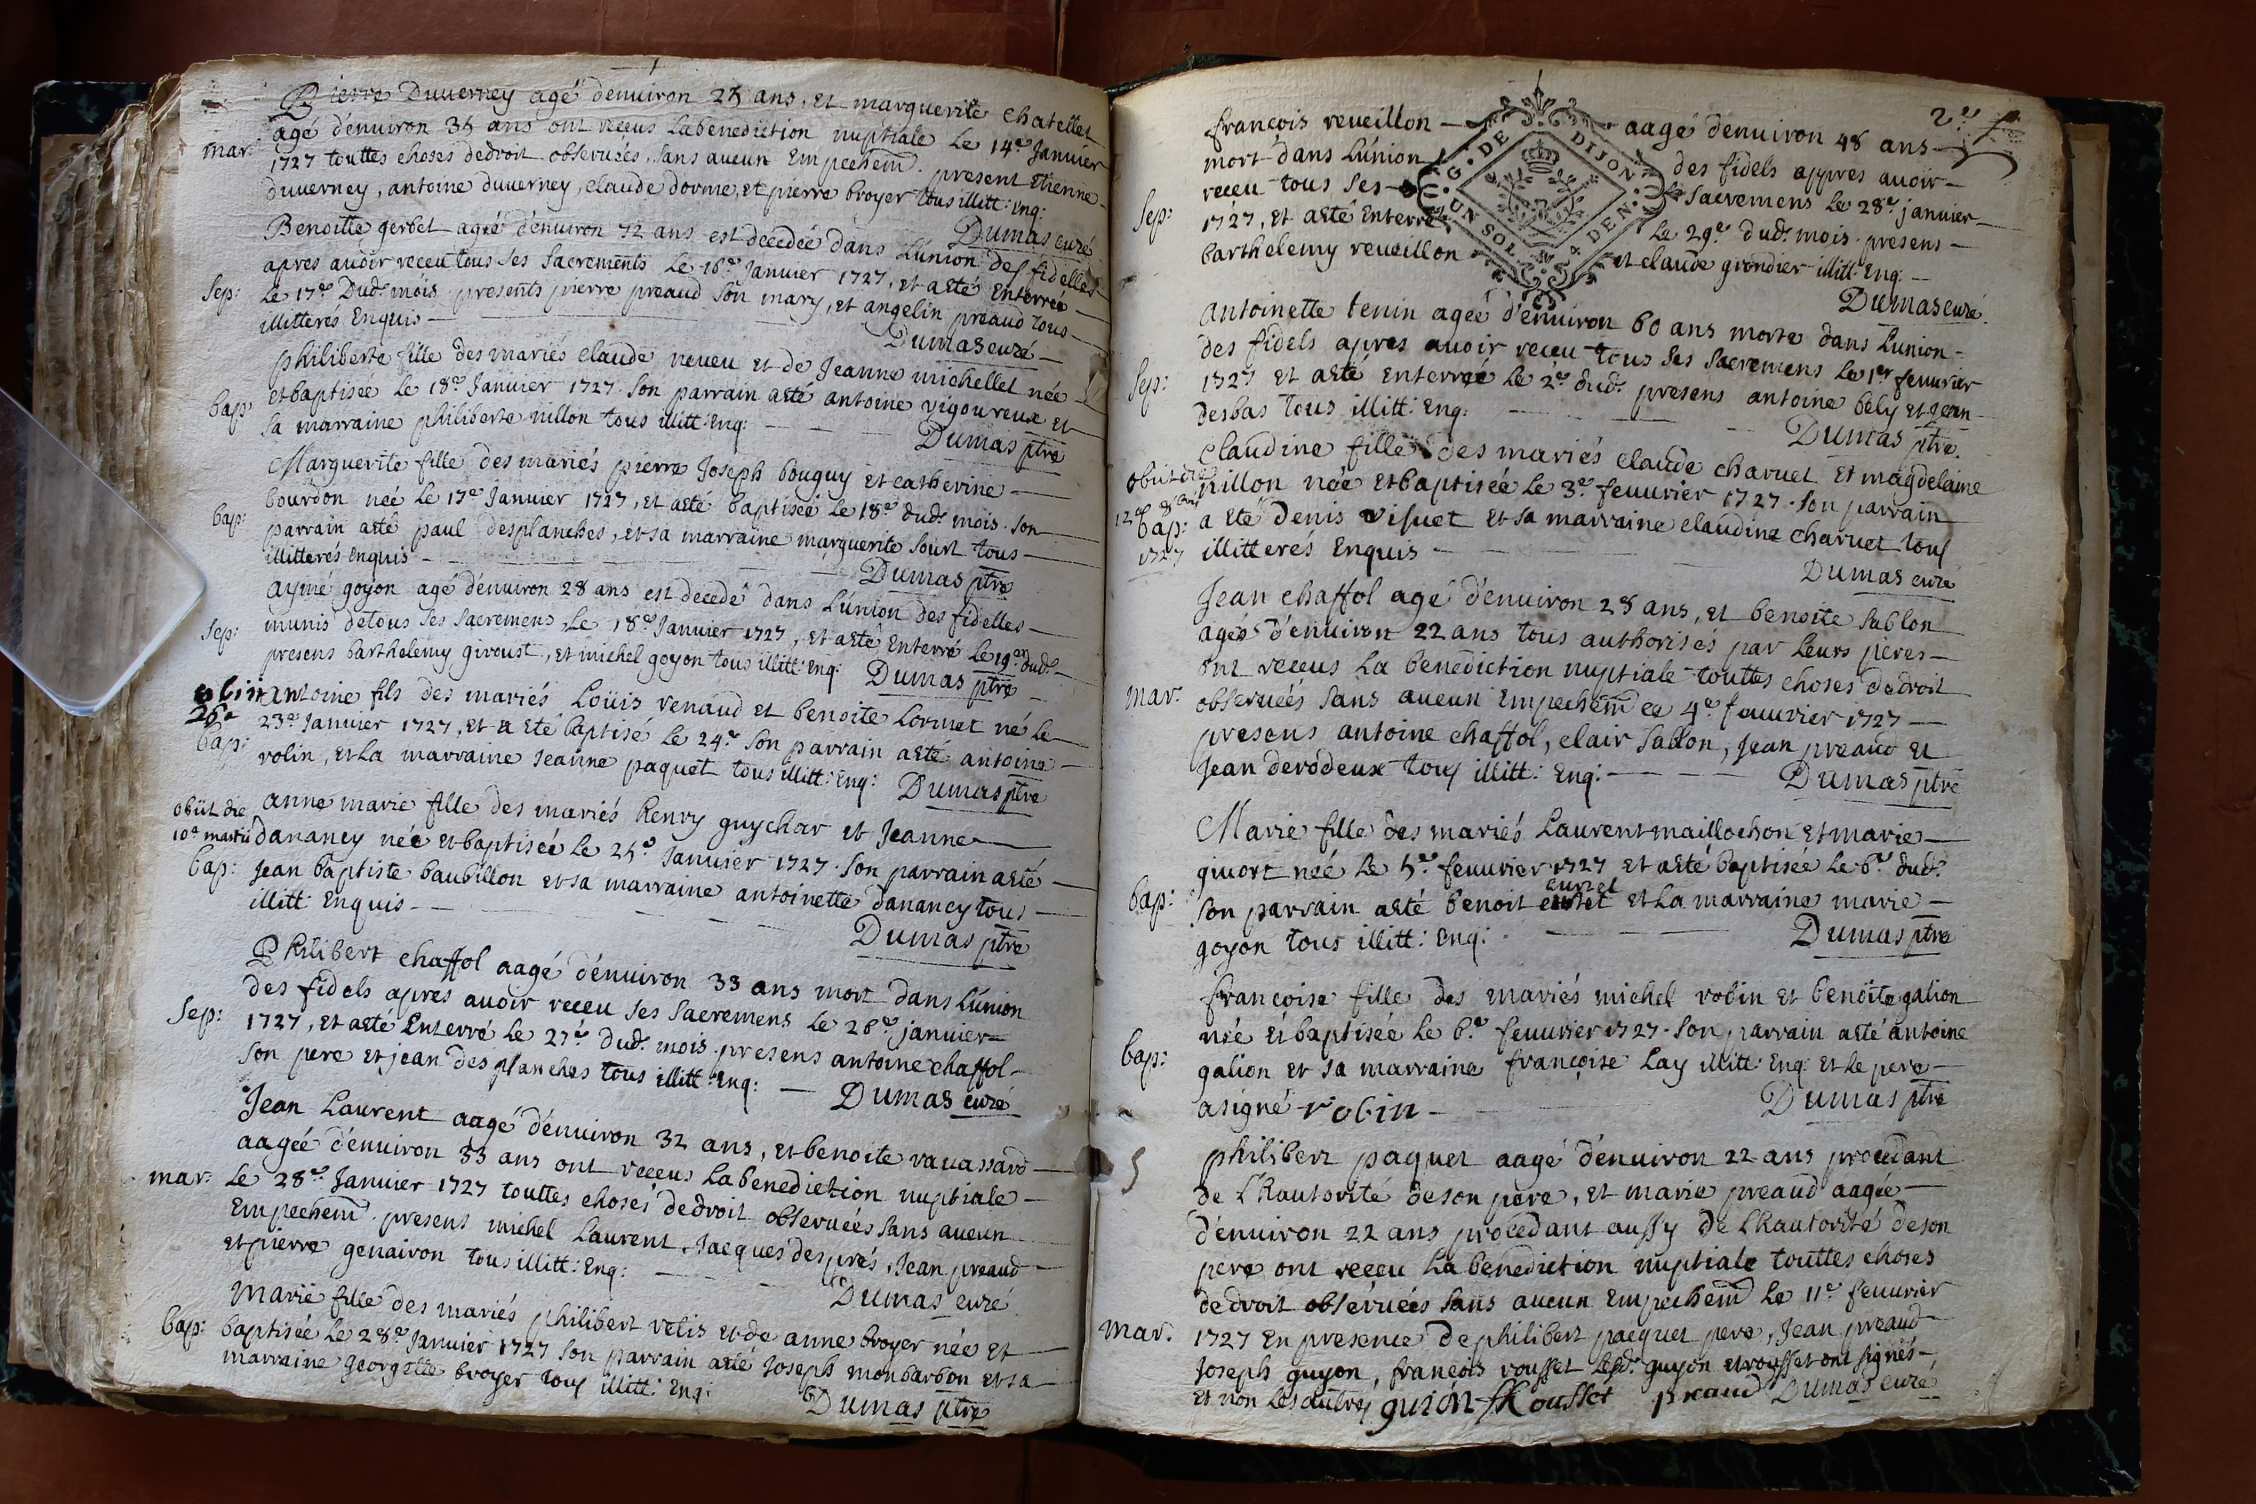 Pierre Duuerney agé denuiron 25 ans, et marguerite chatellet
agé d'enuiron 35 ans ont receus La benediction nuptiale Le 14.e Januier
mar:
1727 touttes choses dedroit obseruées, sans aucun Empechem. present Etienne
duuerney, antoine duuerney, claude dorme, et pierre broyer tous illitt: Enq:
Dumas curé
Benoitte gerbet agée d'enuiron 72 ans est decedée dans L'union des fidelles
apres auoir receu tous ses sacrements Le 16.e Januier 1727, et a eté Enterrée
Sep:
Le 17.e Dud. mois presents pierre preaud son mary, et angelin preaud tous
illitterés Enquis
Dumas curé
philiberte fille des mariés claude neueu et de Jeanne michellet née
et baptisée Le 18.e Januier 1727. Son parrain a eté antoine vigoureux et
bap:
sa marraine philiberte nillon tous illitt: Enq:
Dumas ptre
Marguerite fille des mariés pierre Joseph bouguy et catherine
bourdon née Le 17.e Januier 1727, et a eté baptisée Le 18.e dud. mois. son
bap:
parrain a eté paul desplanches, et sa marraine marguerite sourt tous
illitterés Enquis
Dumas ptre
aymé goyon agé d'enuiron 28 ans est decedé dans L'union des fidelles
munis de tous ses sacremens, Le 18.e Januier 1727, et a eté Enterré Le 19.e dud.
Sep:
presens barthelemy giroust, et michel goyon tous illitt: Enq: Dumas ptre
obiit
26.a
antoine fils des mariés Loüis renaud et benoite Lormet né Le
23.e Januier 1727, et a eté baptisé Le 24.e son parrain a eté antoine
bap:
rolin, et La marraine Jeanne paquet tous illitt: Enq: Dumas ptre
obüt die
10.a martii
anne marie fille des mariés henry guychar et Jeanne
dananey née et baptisée Le 25.e Januier 1727. Son parrain a eté
bap:
Jean baptiste baubillon et sa marraine antoinette dananey tous
illitt: Enquis
Dumas ptre
Philibert chaffol aagé d'enuiron 33 ans mort dans L'union
des fidels apres auoir receu ses sacremens Le 26.e januier
Sep:
1727, et a eté Enterré Le 27.e dud. mois. presens antoine chaffol
son pere et jean desplanches tous illitt: Enq:
Dumas curé
Jean Laurent aagé d'enuiron 32 ans, et benoite vauassard
aagée d'enuiron 33 ans ont receus La benediction nuptiale
mar:
Le 28.e Januier 1727 touttes choses dedroit obseruées sans aucun
Empechem. presens michel Laurent, Jacques després, Jean preaud
et pierre genairon tous illitt: Enq:
Dumas curé
Marie fille des mariés philibert velis et de anne broyer née et
bap:
baptisée Le 28.e Januier 1727 son parrain a eté Joseph monbarbon et sa
marraine georgette broyer tous illitt: Enq:
Dumas ptre
2.e
G. DE DIJON
UN SOL 4 DEN.
françois reueillon aagé d'enuiron 48 ans
mort dans L'union des fidels appres auoir
receu tous ses sacremens Le 28.e januier
Sep:
1727, et a eté Enterré Le 29.e dud. mois presens
barthelemy reueillon et claude grondier illitt: Enq:
Dumas curé
antoinette tenin agée d'enuiron 60 ans morte dans L'union
des fidels apres auoir receu tous ses sacremens Le 1.er feuurier
Sep:
1727 et a eté Enterrée Le 2.e dud. presens antoine bely et jean
desbas tous illitt: Enq:
Dumas ptre
Claudine fille des mariés claude charuet et magdelaine
obiit die
12.a
nillon née et baptisée Le 3.e feuurier 1727. son parrain
bap:
1727
a eté denis visuet et sa marraine claudine charuet tous
illitterés Enquis
Dumas curé
Jean chaffol agé d'enuiron 28 ans, et benoite sablon
agée d'enuiron 22 ans tous authorisés par Leurs peres
ont receus La benediction nuptiale touttes choses dedroit
mar.
obseruéés sans aucun Empechem ce 4.e feuurier 1727
presens antoine chaffol, clair sablon, Jean preaud et
Jean derodeux tous illitt: Enq:
Dumas ptre
Marie fille des mariés Laurent maillochon et marie
giuort née Le 5.e feuurier 1727 et a eté baptisée Le 6.e dud.
curtet
bap:
son parrain a eté benoit et La marraine marie
goyon tous illitt: Enq:
Dumas ptre
françoise fille des mariés michel robin et benoite galion
née et baptisée Le 6.e feuurier 1727. son parrain a eté antoine
bap:
galion et sa marraine françoise Lay illitt: Enq: et Le pere
a signé robin
Dumas ptre
philibert paquet aagé d'enuiron 22 ans procedant
de L'hautorité de son pere, et marie preaud aagée
d'enuiron 22 ans procedant aussy de L'hautorité de son
pere ont receu La benediction nuptiale touttes choses
de droit obséruées sans aucun Empechem Le 11.e feuurier
mar.
1727 En presence de philibert pacquet pere, Jean preaud
Joseph guyon, françois rousset Lesd. guyon et rousset ont signés
et non Les autres guiön fRousset preaud Dumas curé